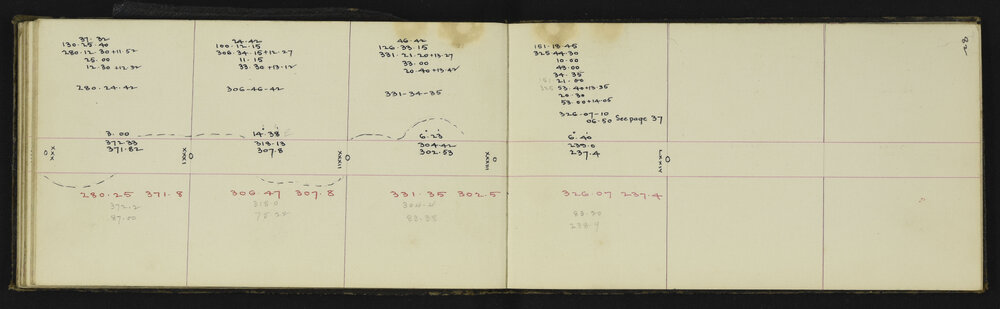 37.32
130.25.40
280.12.30+11.52
25.00
12.30+12.32
280.24.42
3.00
372.33
371.82
XXX
280.25 371.8
372.2
87.00
24.42
100.12.15
306.34.15+12.27
11.15
33.30+13.12
306-46-42
14° 38'
318.13
307.8
XXXI
306.47 307.8
318.0
46.42
126.33.15
331.21.20+13.27
33.00
20.40+13.42
331-34-35
6° 23'
304.42
302.53
XXXII
331.35 302.5
304.4
83.38
XXXIII
151.18.45
325.44.30
10.00
49.00
34.35
21.00
53.40+13.35
20.30
53.00+14.05
326-07-10
06.50 See page 37
6.40
239.0
237.4
LXXIV
326.07 237.4
83.30
82